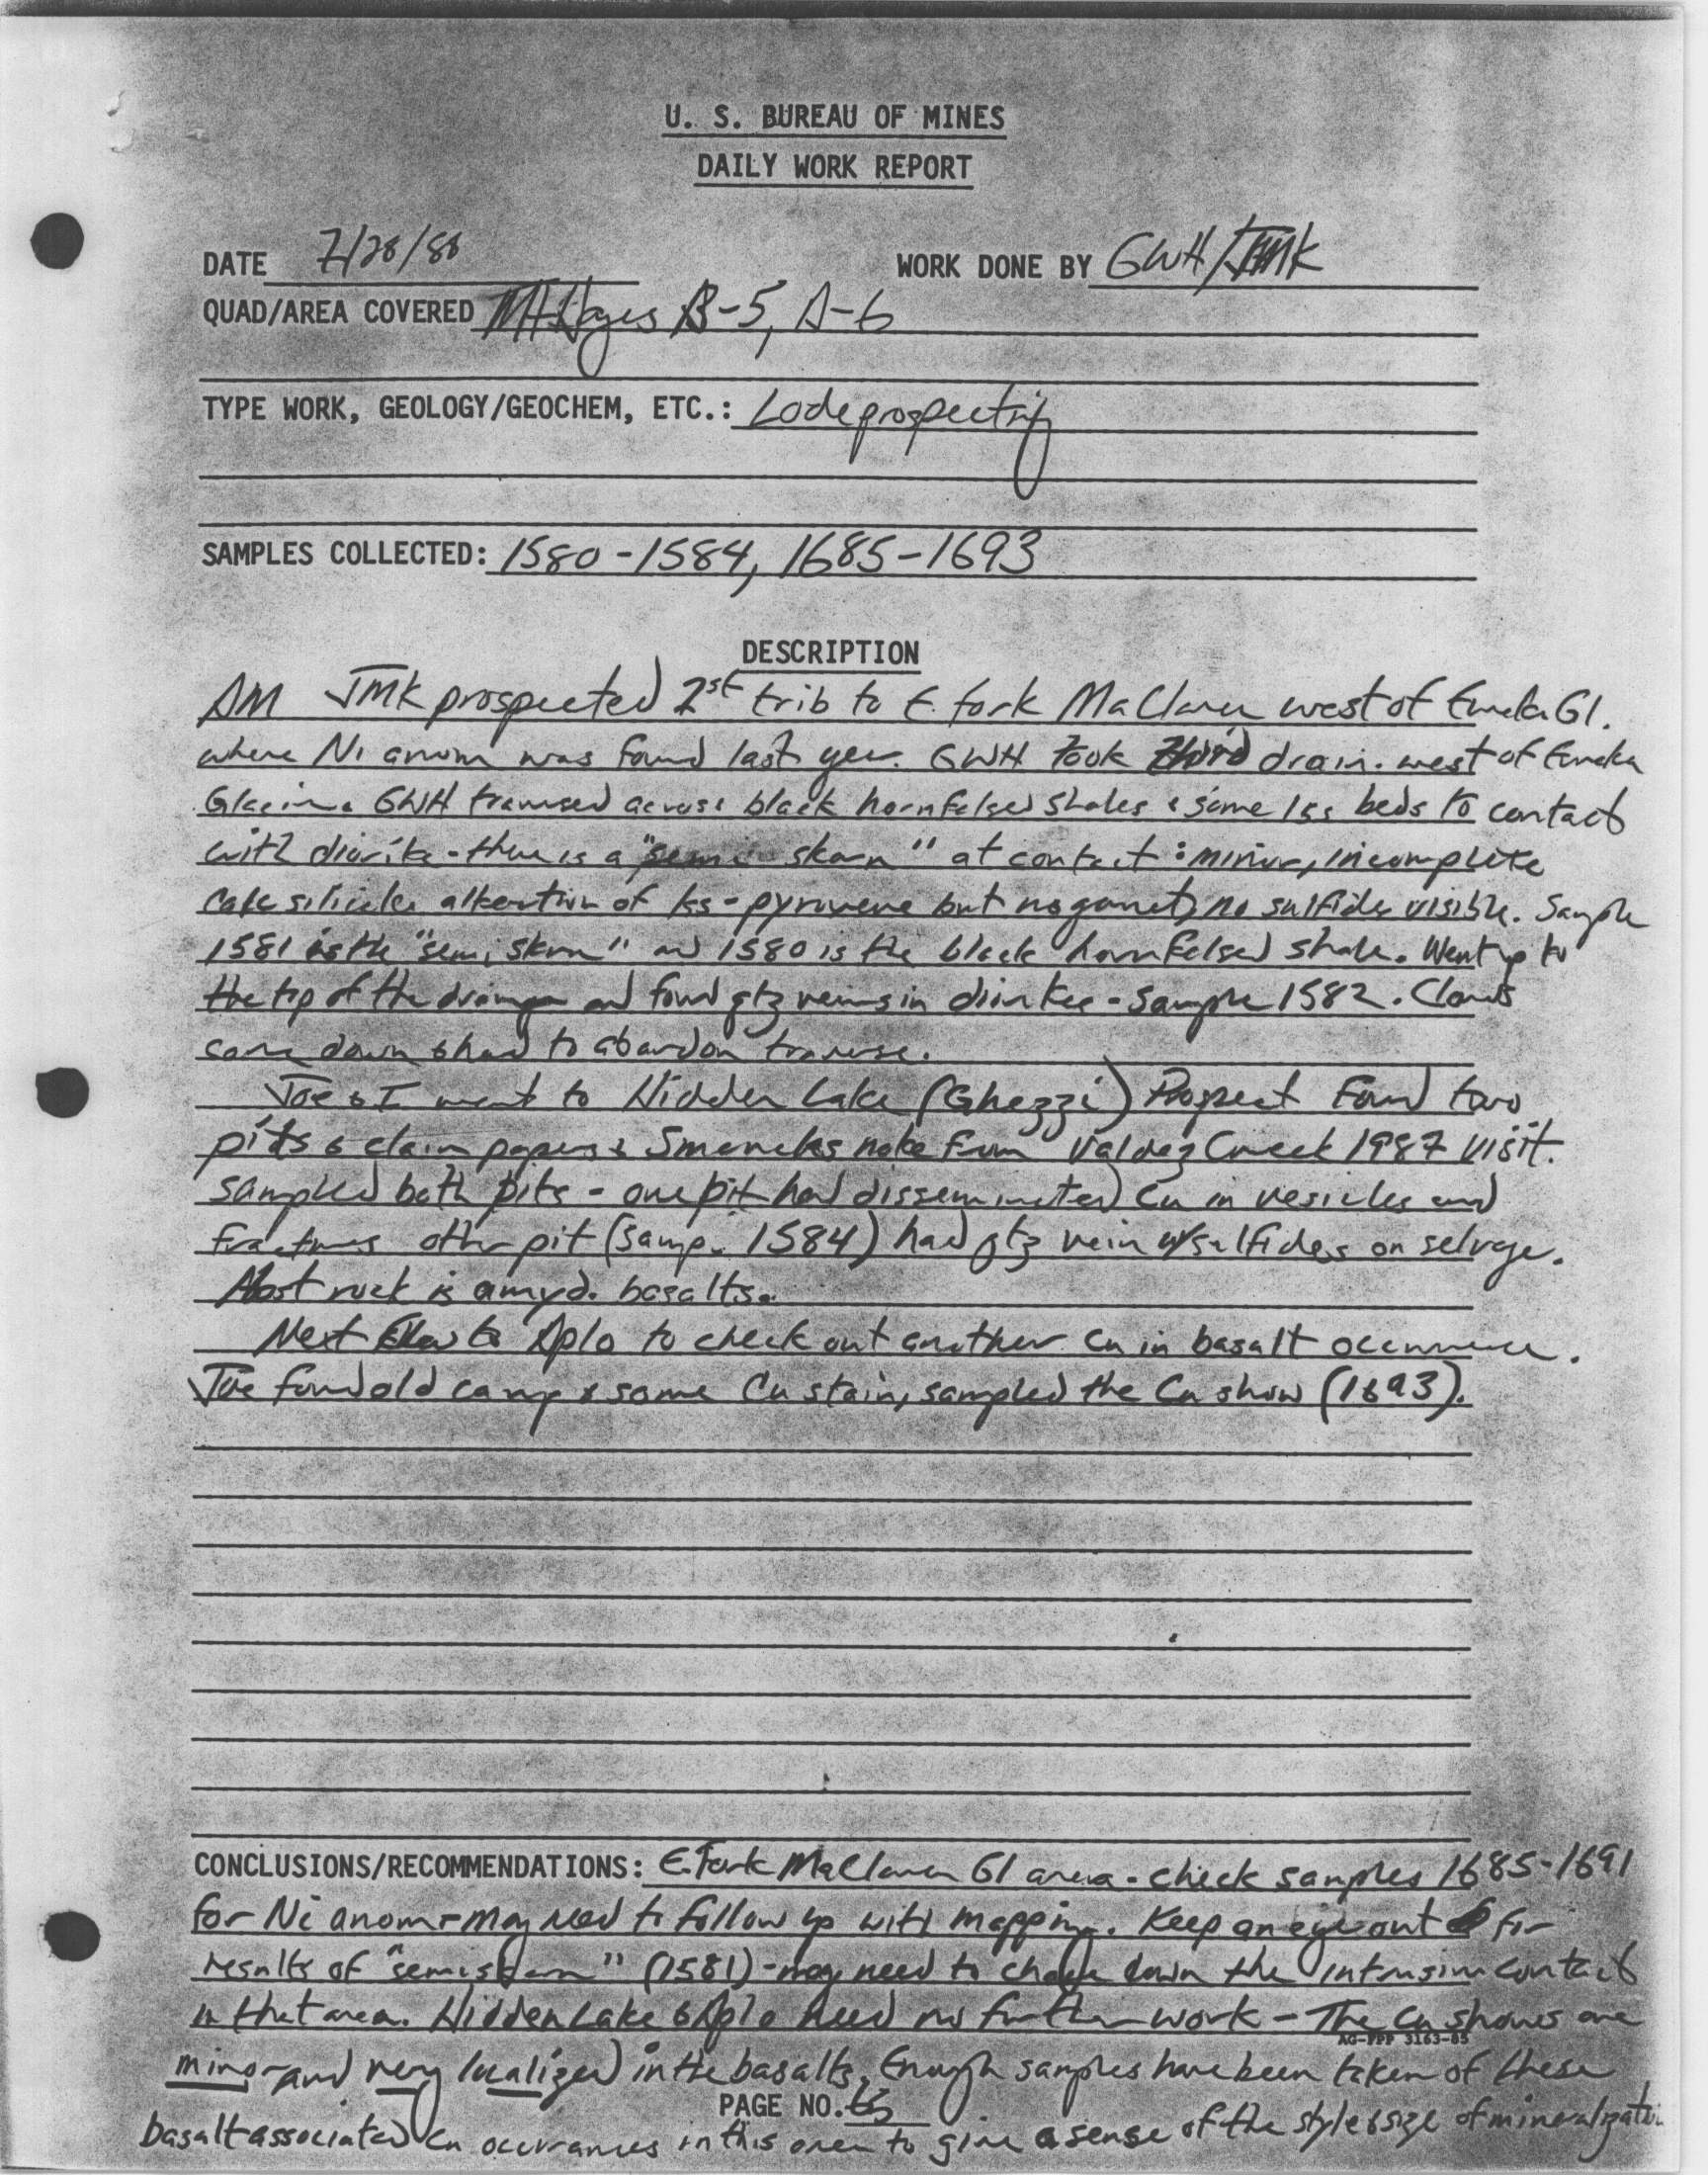 U. S. BUREAU OF MINES
DAILY WORK REPORT
DATE 7/28/88 WORK DONE BY GWH/JMK
QUAD/AREA COVERED Mt Hayes B-5, A-6
TYPE WORK, GEOLOGY/GEOCHEM, ETC.: Lode prospecting
SAMPLES COLLECTED: 1580-1584, 1685-1693
DESCRIPTION
AM JMK prospected 2st trib to E. fork Maclaren west of Eureka Gl.
where Ni anom was found last year. GWH took third drain. west of Eureka
Glacier. GWH traversed across black hornfelsed shales & some lss beds to contact
with diorite - there is a "semi-skarn" at contact: minor, incomplete
calc silicate alteration of lss - pyroxene but no garnet, no sulfide visible. Sample
1581 is the "semi skarn" and 1580 is the black hornfelsed shale. Went up to
the top of the drainage and found qtz veins in diorite - sample 1582. Clouds
came down & had to abandon traverse.
Joe & I went to Hidden Lake (Ghezzi) Prospect Found two
pits & claim papers & Smencks note from Valdez Creek 1987 visit.
sampled both pits - one pit had disseminated Cu in vesicles and
fractures other pit (samp. 1584) had qtz vein w/sulfides on selvage.
Host rock is amyd. basalts.
Next flew to Aplo to check out another Cu in basalt occurrence.
Joe found old camp & some Cu stain, sampled the Cu show (1693).
CONCLUSIONS/RECOMMENDATIONS: E. Fork Maclaren Gl area - check samples 1685-1691
for Ni anom - may need to follow up with mapping. Keep an eye out for
results of "semiskarn" (1581) - may need to chase down the intrusive contact
in that area. Hidden Lake & Aplo need no further work - The Cu shows are
AG-PPP 3163-85
minor and very localized in the basalts. Enough samples have been taken of these
PAGE NO.
basalt associated Cu occurrances in this area to give a sense of the style & size of mineralization